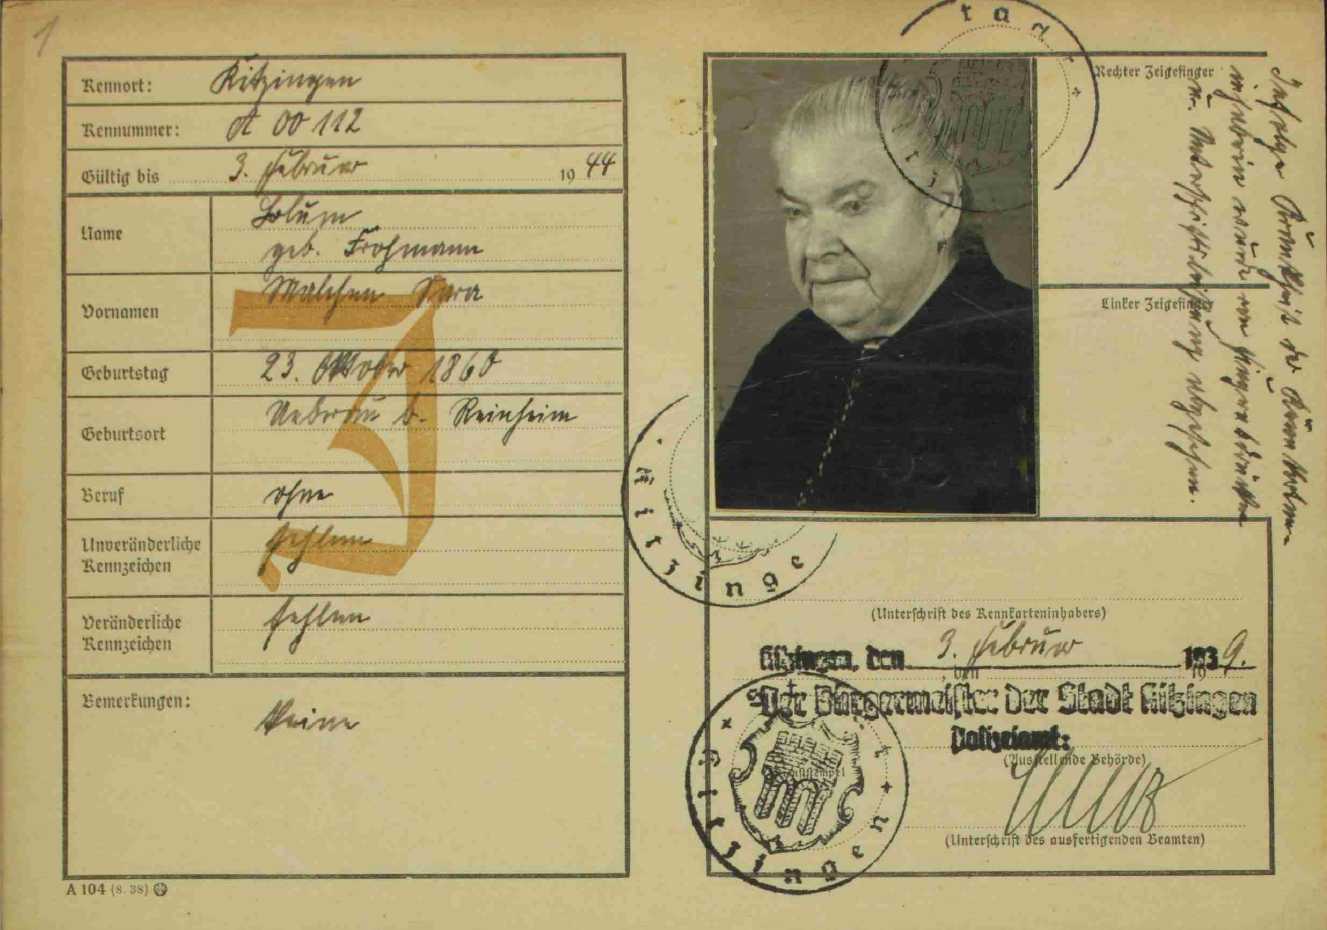 1
Kennort: Kitzingen
Kennummer: A 00 112
Gültig bis 3. Februar 1944
Name
geb. Frohmann
Vornamen Malchen Sara
Geburtstag 23. Oktober 1860
Geburtsort Ueberau b. Reinheim
Beruf ohne
Unveränderliche Kennzeichen fehlen
Veränderliche Kennzeichen fehlen
Bemerkungen: Keine
J
A 104 (8. 38)
Rechter Zeigefinger
Linker Zeigefinger
Infolge Krankheit der Karten-
inhaberin wurde von Fingerabdrücken
u. Unterschriftsleistung abgesehen.
Kitzingen
(Unterschrift des Kennkarteninhabers)
Kitzingen, den 3. Februar 1939.
, den 19
Der Bürgermeister der Stadt Kitzingen
Polizeiamt:
(Ausstellende Behörde)
(Unterschrift des ausfertigenden Beamten)
Stadt Kitzingen